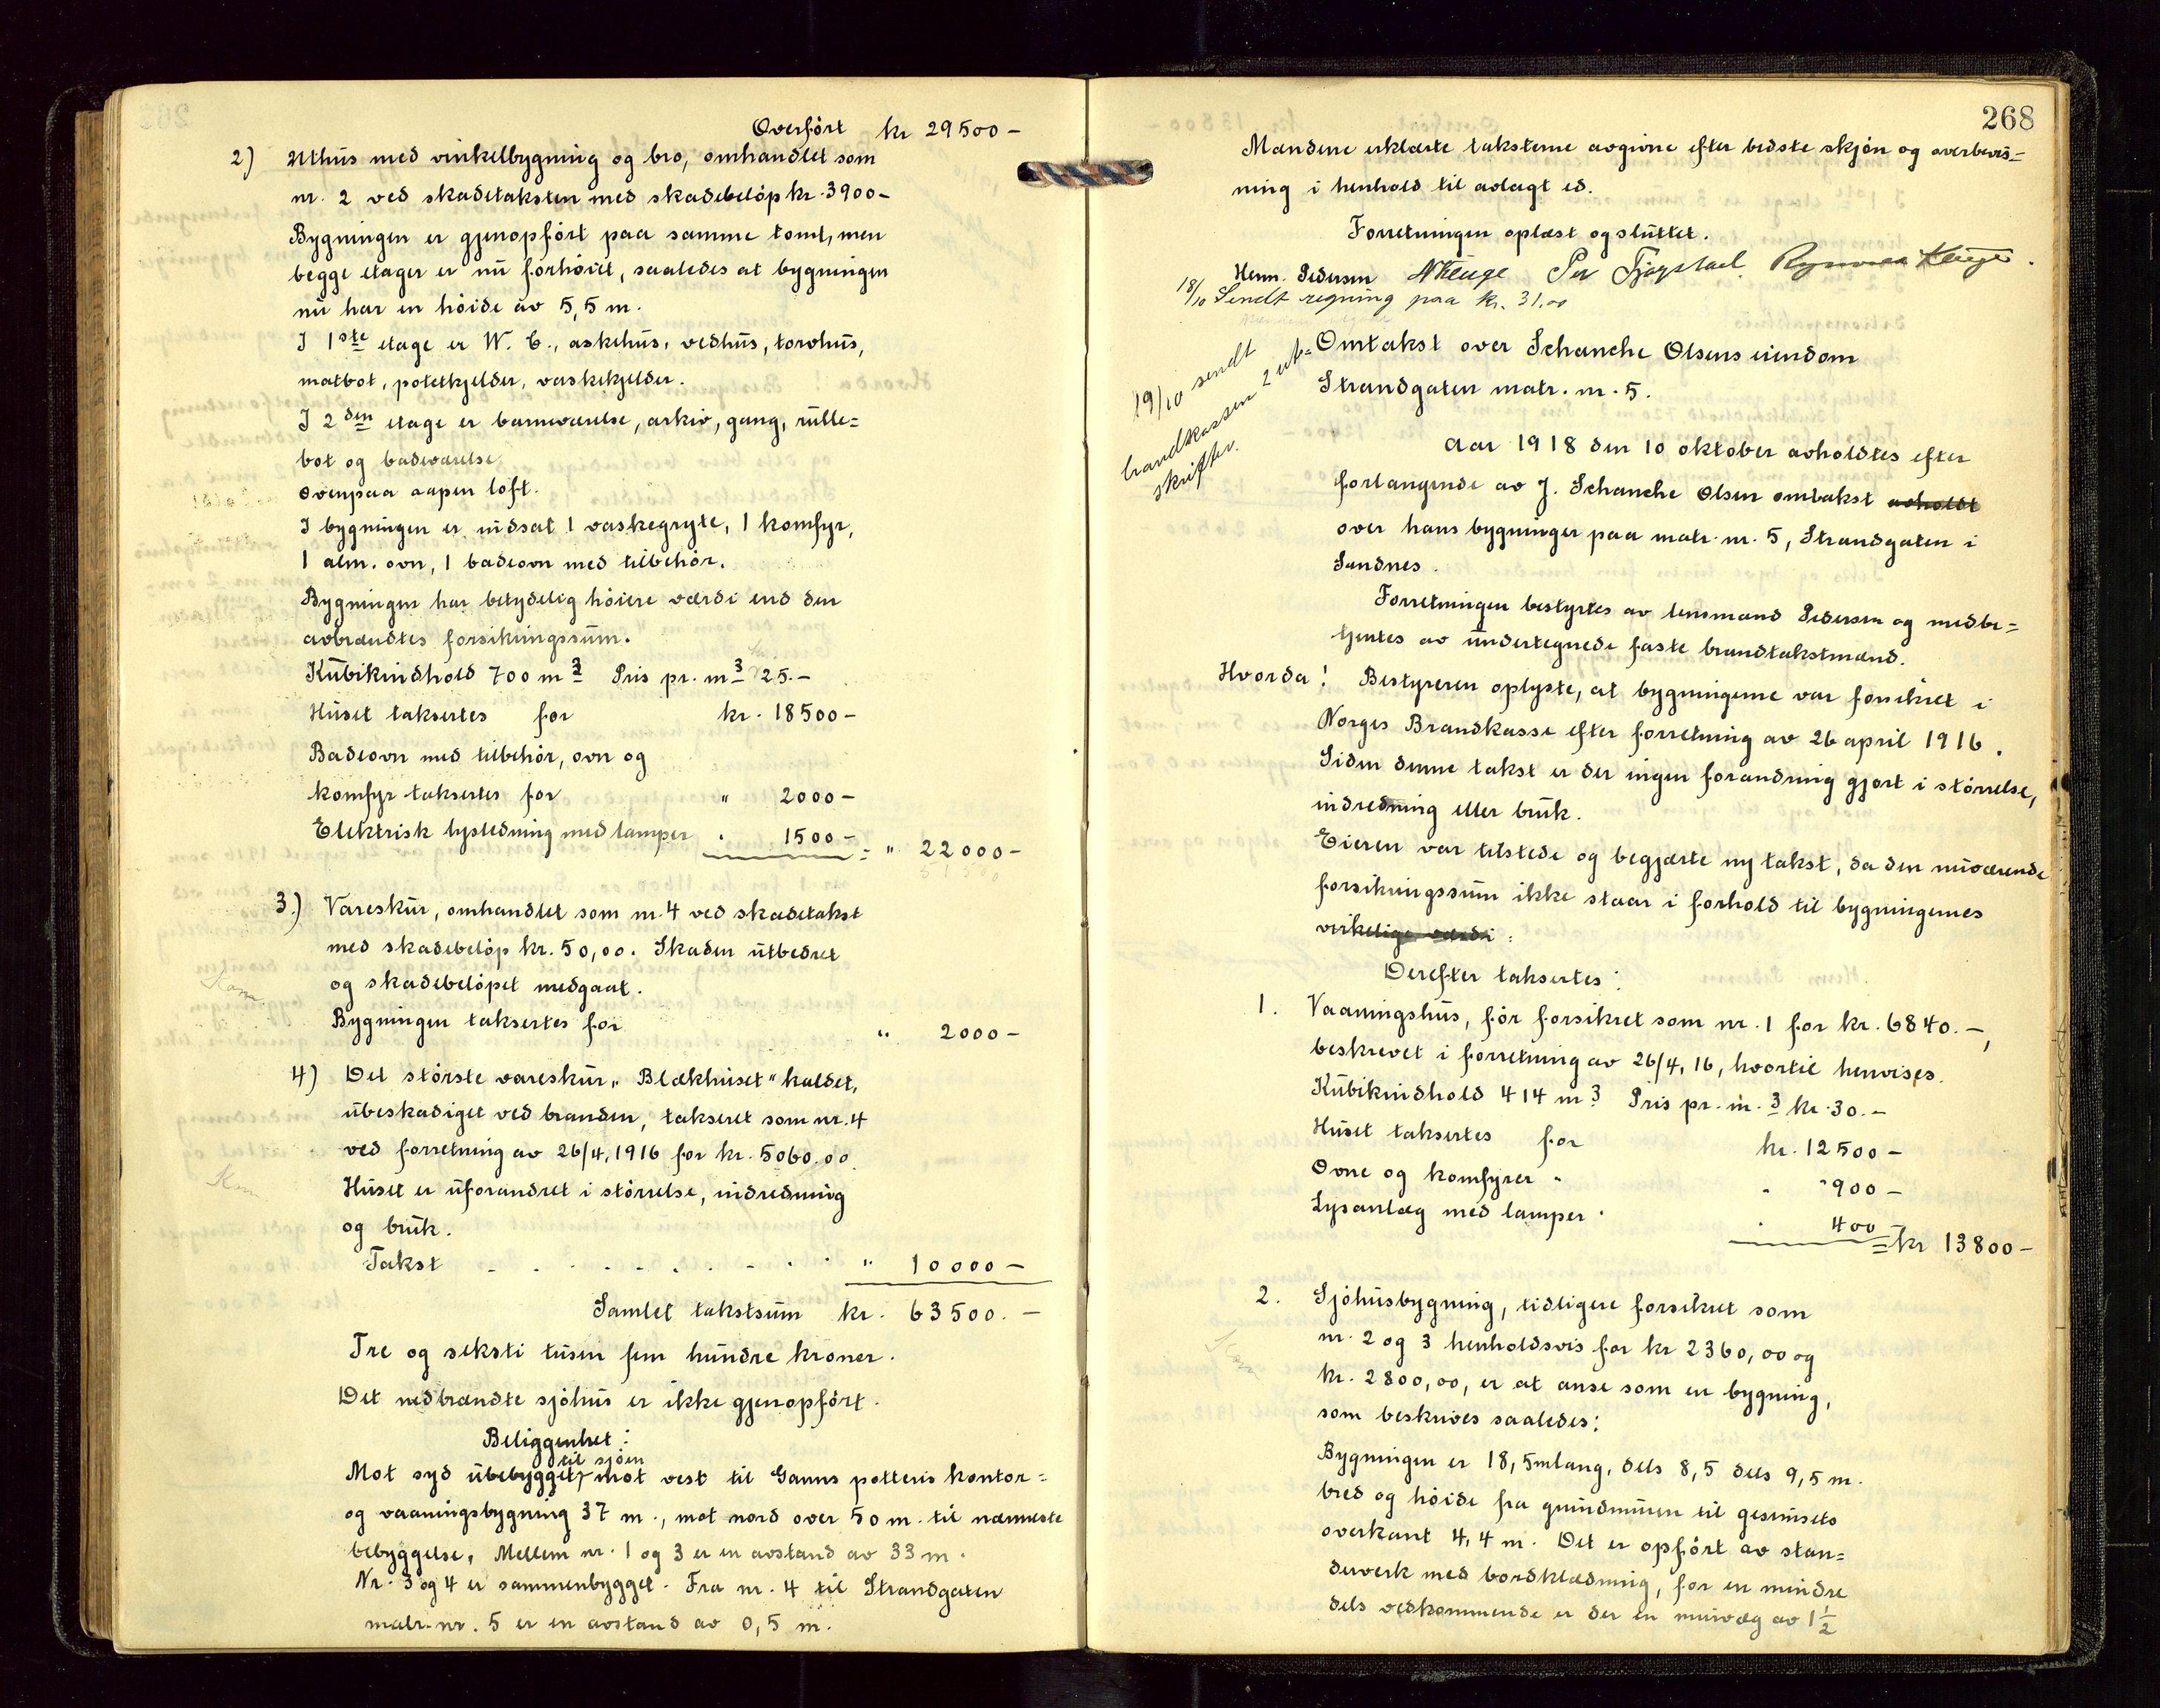 Overført kr 29500 –
2) Uthus med vinkelbygning og bro, omhandlet som
nr. 2 ved skadetaksten med skadebeløp kr. 3900 –
Bygningen er gjenopført paa samme tomt, men
begge etager er nu forhøiet, saaledes at bygningen
nu har en høide av 5,5 m.
I 1ste etage er W. C., askehus, vedhus, torvhus,
matbot, potetkjelder, vaskekjelder.
I 2den etage er barneværelse, arkiv, gang, rulle=
bot og badeværelse
Ovenpaa aapen loft.
I bygningen er indsat 1 vaskegryte, 1 komfyr,
1 alm. ovn, 1 badeovn med tilbehør.
Bygningen har betydelig høiere værdi end den
avbrændtes forsikringssum.
Kubikindhold 700 m3 Pris pr. m3 25.–
Huset taksertes for kr. 18500 –
Badeovn med tilbehør, ovn og
komfyr taksertes for " 2000 –
Elektrisk lysledning med lamper " 1500 – = " 22000 –
51500
3.) Vareskur, omhandlet som nr. 4 ved skadetakst
med skadebeløp kr. 50,00. Skaden utbedret
og skadebeløpet medgaat.
Bygningen taksertes for " 2000 –
4) Det største vareskur "Blækhuset" kaldet,
ubeskadiget ved branden, takseret som nr. 4
ved forretning av 26/4, 1916 for kr. 5060.00.
Huset er uforandret i størrelse, indredning
og bruk.
Takst " 10000 –
Samlet takstsum kr. 63500. –
Tre og seksti tusen fem hundre kroner.
Det nedbrændte sjøhus er ikke gjenopført.
Beliggenhet:
til sjøen
Mot syd ubebygget, mot vest til Ganns potteris kontor=
og vaaningsbygning 37 m., mot nord over 50 m. til nærmeste
bebyggelse, Mellem nr. 1 og 3 er en avstand av 33 m.
Nr. 3 og 4 er sammenbygget. Fra nr. 4 til Strandgaten
matr. nr. 5 er en avstand av 0,5 m.
268
Mændene erklærte taksterne avgivne efter bedste skjøn og overbevis=
ning i henhold til avlagt ed.
Forretningen oplæst og sluttet.
Herm. Pedersen Per
18/10 Sendt regning paa kr. 31,00
19/10 sendt
brandkassen 2 ut=
skrifter.
Omtakst over Schanche Olsens eiendom
Strandgaten matr. nr. 5.
Aar 1918 den 10 oktober avholdtes efter
forlangende av J. Schanche Olsen omtakst avholdt
over hans bygninger paa matr. nr. 5, Strandgaten i
Sandnes.
Forretningen bestyrtes av lensmand Pedersen og medbe=
tjentes av undertegnede faste brandtakstmænd.
Hvorda! Bestyreren oplyste, at bygningerne var forsikret i
Norges Brandkasse efter forretning av 26 april 1916.
Siden denne takst er der ingen forandring gjort i størrelse,
indredning eller bruk.
Eieren var tilstede og begjærte ny takst, da den nuværende
forsikringssum ikke staar i forhold til bygningernes
virkelige værdi.
Derefter taksertes:
1. Vaaningshus, før forsikret som nr. 1 for kr. 6840. –,
beskrevet i forretning av 26/4, 16, hvortil henvises.
Kubikindhold 414 m3 Pris pr. m.3 kr. 30. –
Huset taksertes for kr. 12500 –
Ovne og komfyrer " " 900 –
Lysanlæg med lamper " " 400 – = kr 13800 –
2. Sjøhusbygning, tidligere forsikret som
nr. 2 og 3 henholdsvis for kr 2360,00 og
kr. 2800,00, er at anse som en bygning,
som beskrives saaledes:
Bygningen er 18,5 m lang, dels 8,5 dels 9,5 m.
bred og høide fra grundmuren til gesimsets
overkant 4,4 m. Det er opført av stan=
derverk med bordklædning, for en mindre
dels vedkommende er der en murvæg av 1 1/2